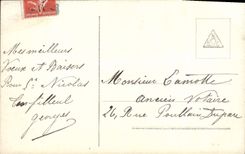 Mes meilleurs
Voeux et Baisers
Pour St Nicolas
Ton filleul
Georges
Monsieur Lamotte
ancien Notaire
26, Rue Poullain Duparc